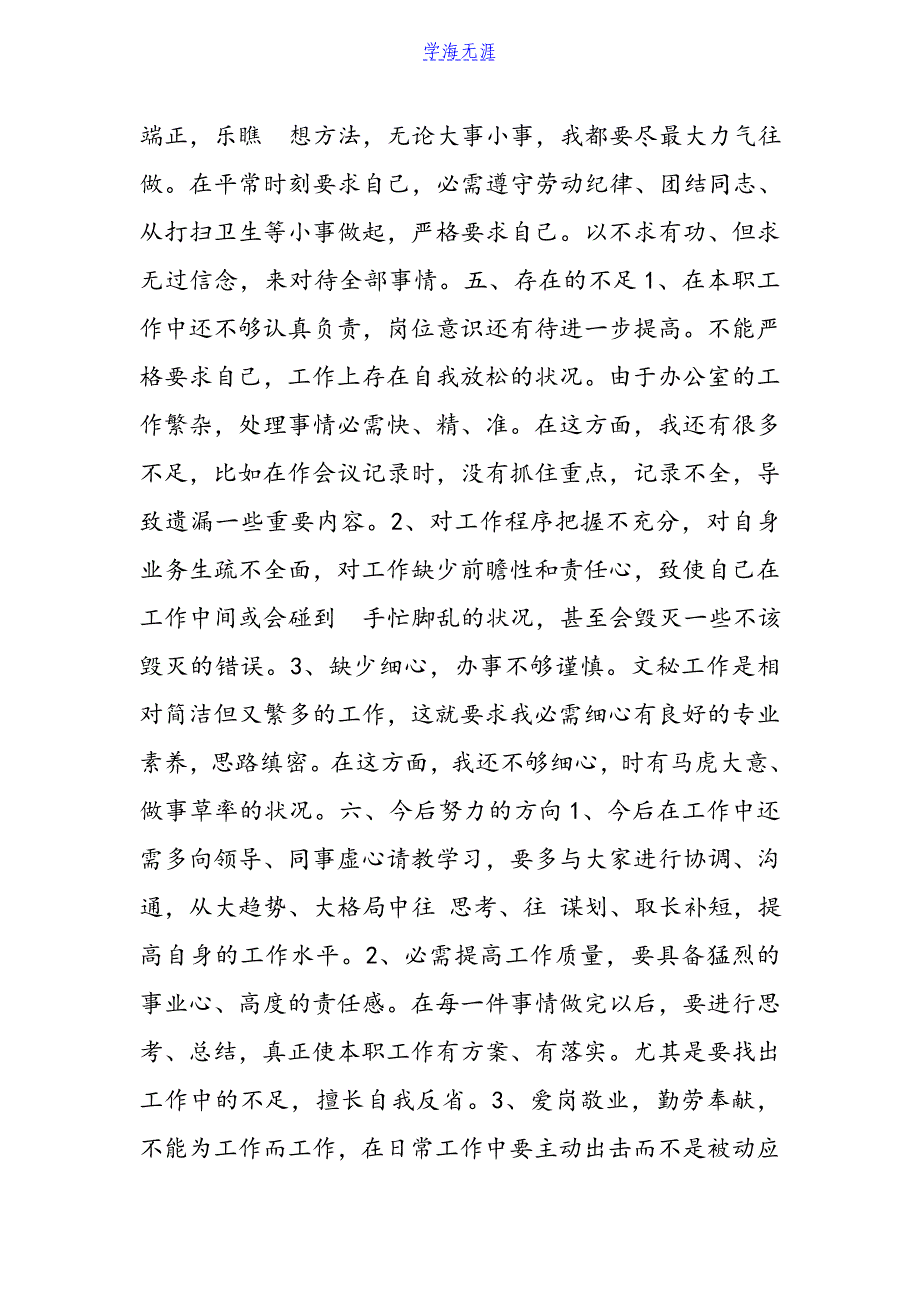 学海无涯
端正，乐瞧　想方法，无论大事小事，我都要尽最大力气往
做。在平常时刻要求自己，必需遵守劳动纪律、团结同志、
从打扫卫生等小事做起，严格要求自己。以不求有功、但求
无过信念，来对待全部事情。五、存在的不足 1、在本职工
作中还不够认真负责，岗位意识还有待进一步提高。不能严
格要求自己，工作上存在自我放松的状况。由于办公室的工
作繁杂，处理事情必需快、精、准。在这方面，我还有很多
不足，比如在作会议记录时，没有抓住重点，记录不全，导
致遗漏一些重要内容。2、对工作程序把握不充分，对自身
业务生疏不全面，对工作缺少前瞻性和责任心，致使自己在
工作中间或会碰到　手忙脚乱的状况，甚至会毁灭一些不该
毁灭的错误。3、缺少细心，办事不够谨慎。文秘工作是相
对简洁但又繁多的工作，这就要求我必需细心有良好的专业
素养，思路缜密。在这方面，我还不够细心，时有马虎大意、
做事草率的状况。六、今后努力的方向 1、今后在工作中还
需多向领导、同事虚心请教学习，要多与大家进行协调、沟
通，从大趋势、大格局中往 思考、往 谋划、取长补短，提
高自身的工作水平。2、必需提高工作质量，要具备猛烈的
事业心、高度的责任感。在每一件事情做完以后，要进行思
考、总结，真正使本职工作有方案、有落实。尤其是要找出
工作中的不足，擅长自我反省。3、爱岗敬业，勤劳奉献，
不能为工作而工作，在日常工作中要主动出击而不是被动应